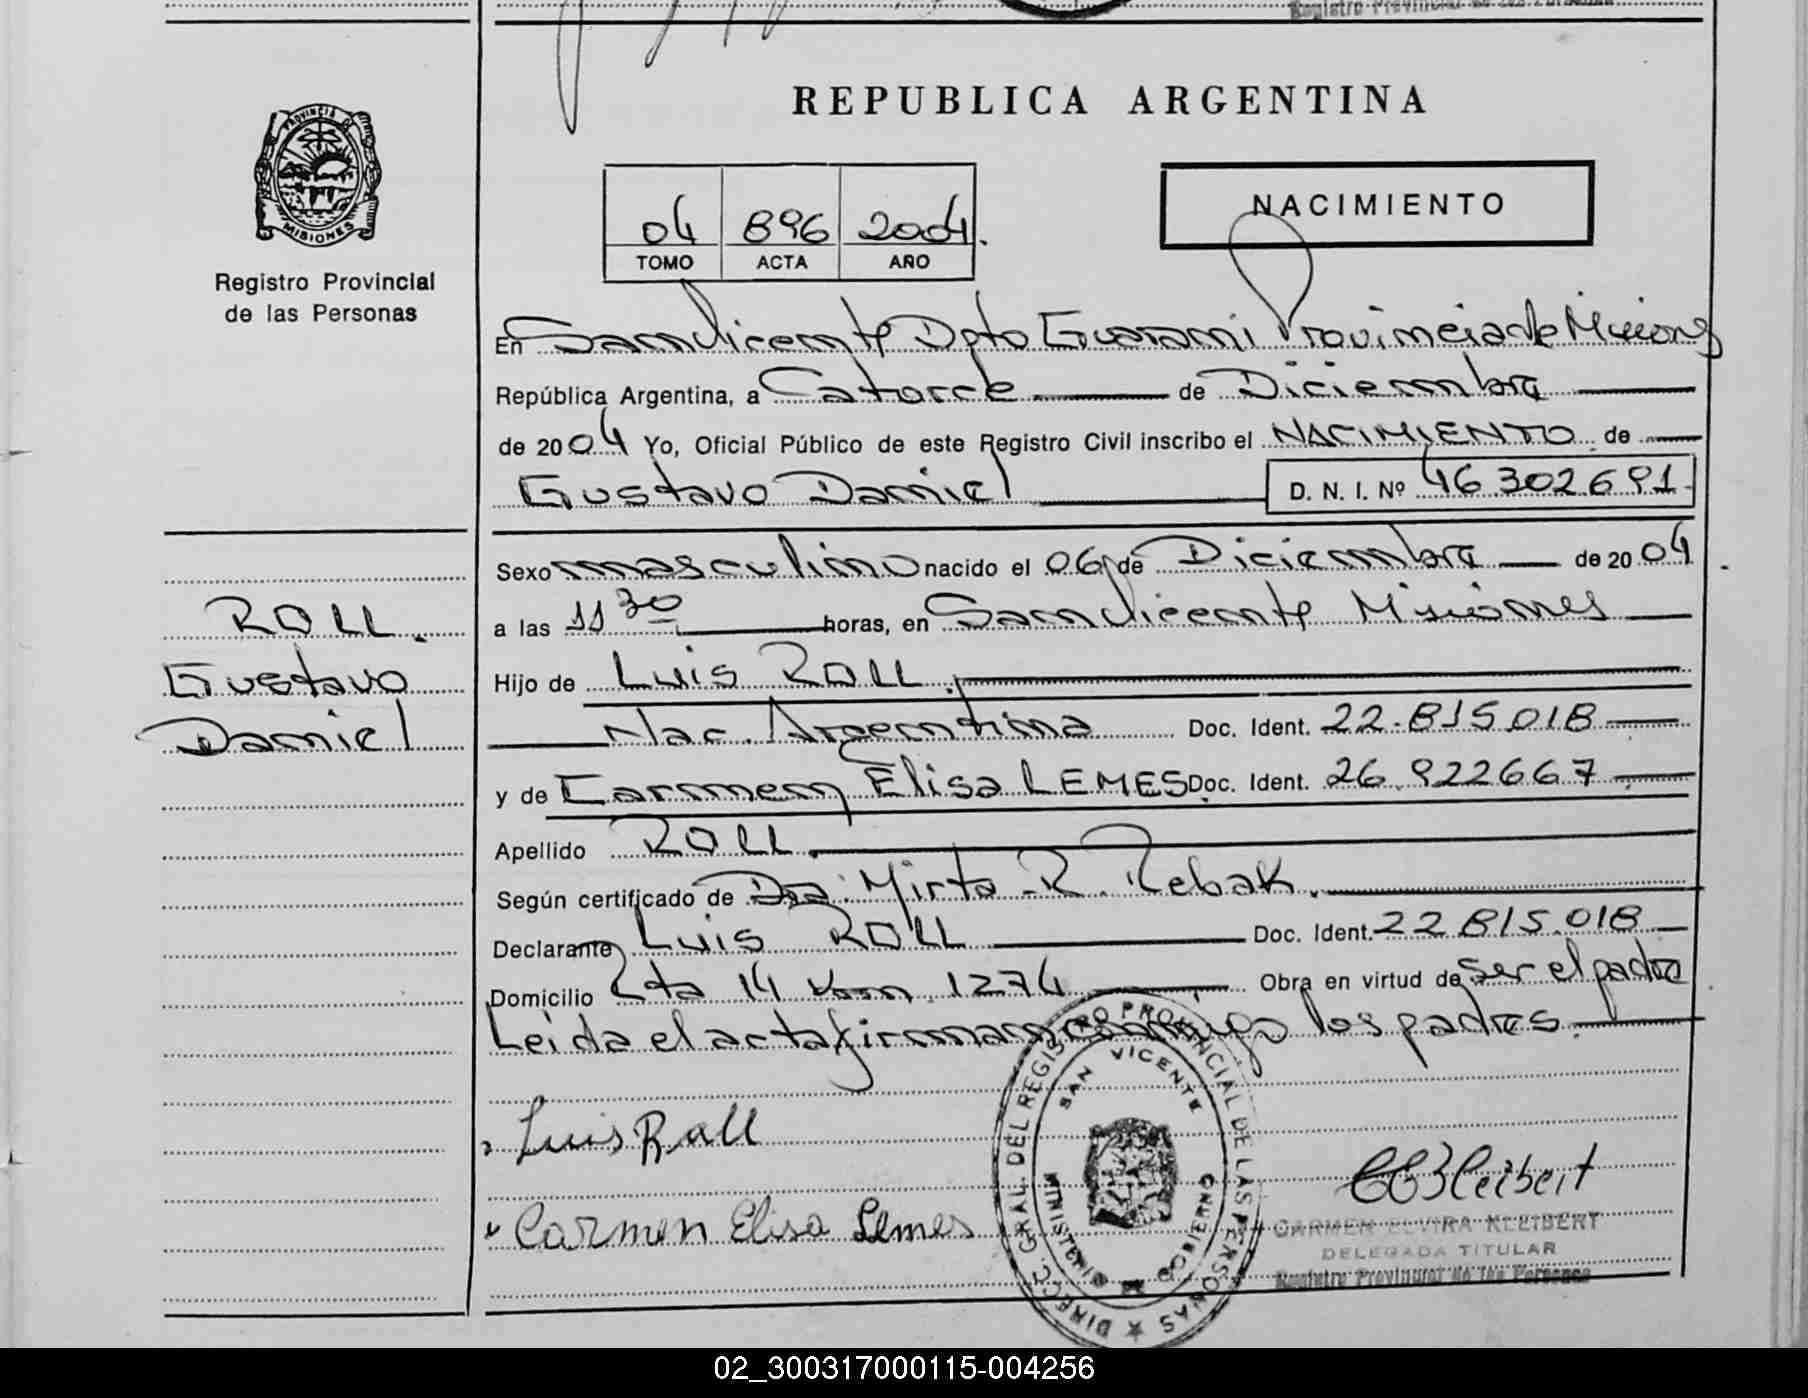 Registro Provincial de las Personas
REPUBLICA ARGENTINA
PROVINCIA DE
MISIONES
Registro Provincial
de las Personas
04 896 2004.
TOMO ACTA AÑO
NACIMIENTO
En San Vicente Dpto Guarani Provincia de Misiones
República Argentina, a Catorce de Diciembre
de 2004 Yo, Oficial Público de este Registro Civil inscribo el NACIMIENTO de
Gustavo Daniel D. N. I. Nº 46 302 691
Sexo masculino nacido el 06 de Diciembre de 2004
a las 11 30 horas, en San Vicente Misiones
ROLL.
Gustavo
Daniel
Hijo de Luis ROLL.
Nac. Argentina Doc. Ident. 22.815.018
y de Carmen Elisa LEMES Doc. Ident. 26.922667
Apellido ROLL.
Según certificado de Dra. Mirta R. Rebak.
Declarante Luis ROLL Doc. Ident. 22 815.018
Domicilio Rta 14 km. 1274 Obra en virtud de ser el padre
Leida el acta firman conmigo los padres.
Luis Roll
Carmen Elisa Lemes
DIRECC. GRAL. DEL REGISTRO PROVINCIAL DE LAS PERSONAS
SAN VICENTE
MINISTERIO GOBIERNO
CARMEN ELVIRA KLEIBERT
DELEGADA TITULAR
Registro Provincial de las Personas
02_300317000115-004256